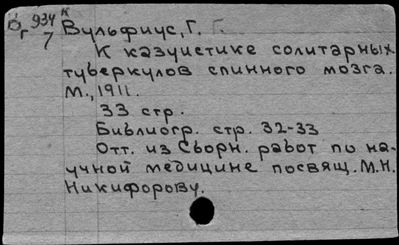 В 934 к
г 7
Вульфиус, Г. Г.
К казуистике солитарных
туберкулов спинного мозга.
М., 1911.
33 стр.
Библиогр. стр. 32-33
Отт. из Сборн. работ по на-
учной медицине посвящ. М.Н.
Никифорову.